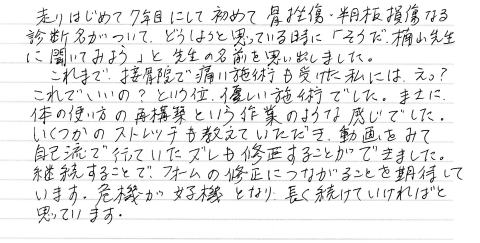 走りはじめて7年目にして初めて骨挫傷・半月板損傷なる
診断名がついて、どうしようと思っている時に「そうだ、楠山先生
に聞いてみよう」と先生の名前を思い出しました。
これまで、接骨院で痛い施術も受けた私には、えっ?
これでいいの?という位、優しい施術でした。まさに、
体の使い方の再構築という作業のような感じでした。
いくつかのストレッチも教えていただき、動画をみて
自己流で行っていたズレも修正することができました。
継続することでフォームの修正につながることを期待して
います。危機が好機となり、長く続けていければと
思っています。